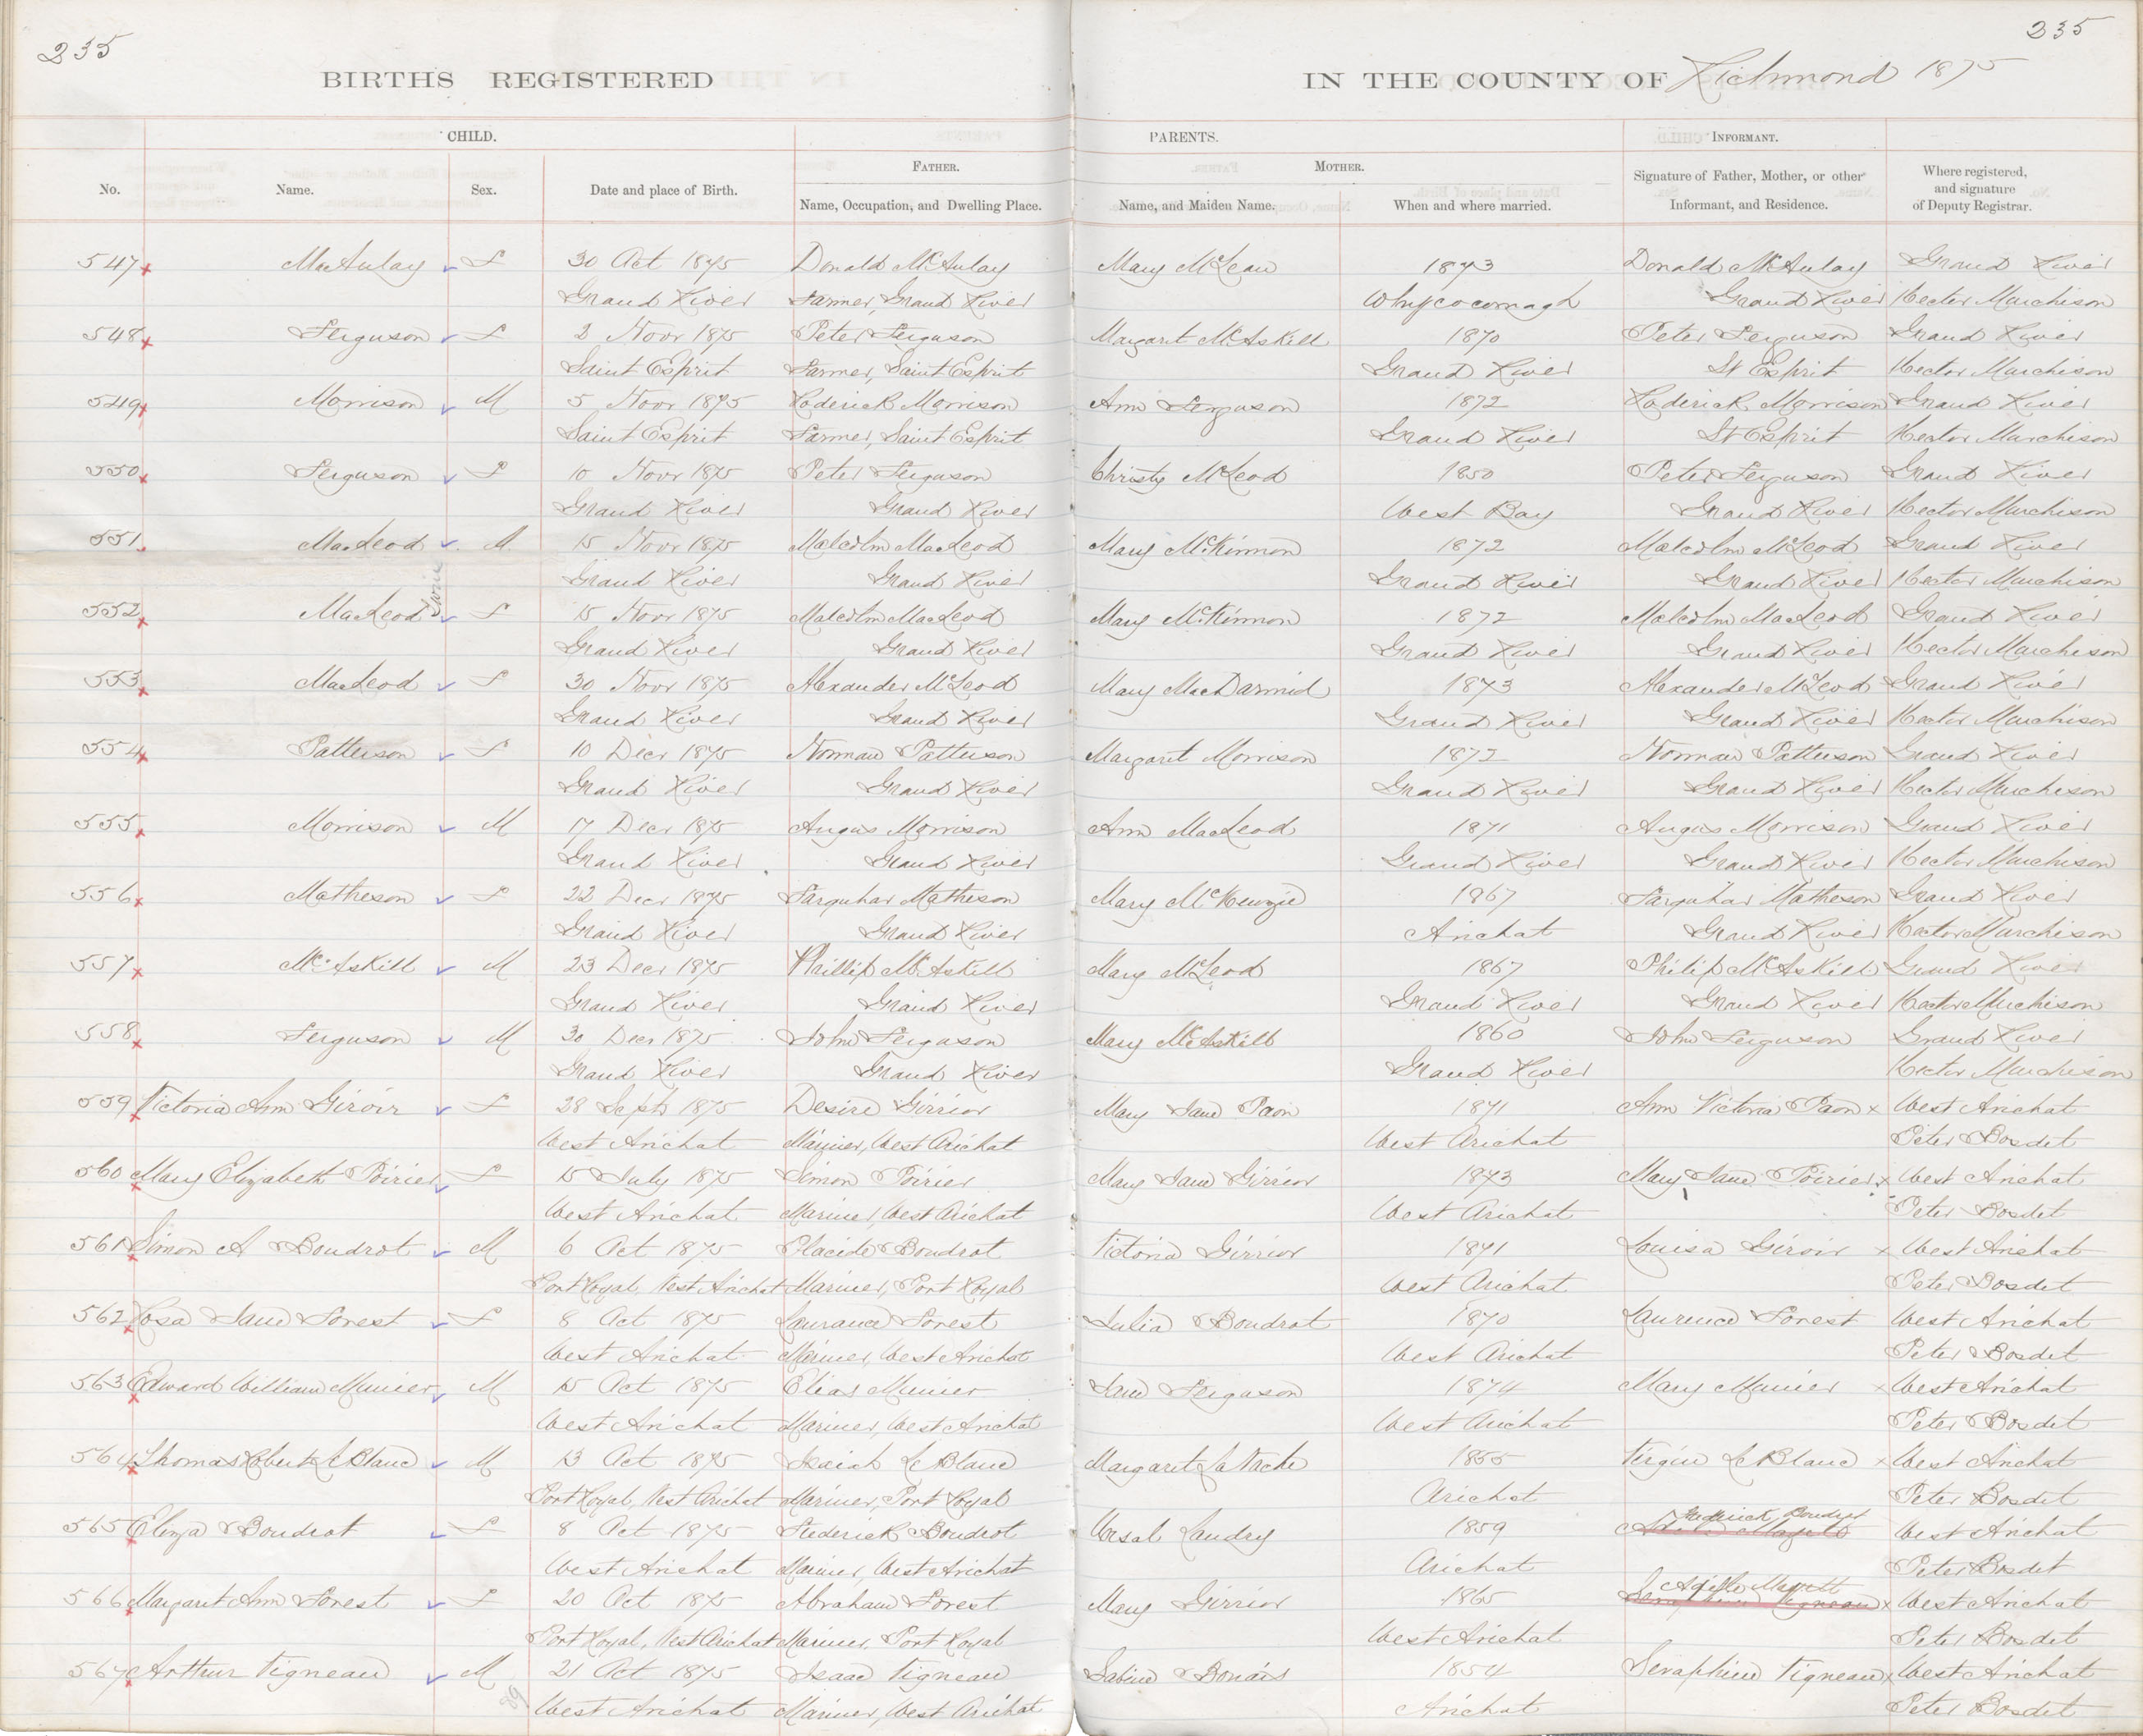 235
235
BIRTHS REGISTERED IN THE COUNTY OF Richmond 1875
CHILD. PARENTS. INFORMANT.
FATHER. MOTHER.
No. Name. Sex. Date and place of Birth. Name, Occupation, and Dwelling Place. Name, and Maiden Name. When and where married. Signature of Father, Mother, or other Informant, and Residence. Where registered, and signature of Deputy Registrar.
547 MacAulay F 30 Oct 1875 Donald McAulay Mary McLean 1873 Donald McAulay Grand River
Grand River Farmer, Grand River Whycocomagh Grand River Hector Murchison
548 Ferguson F 2 Novr 1875 Peter Ferguson Margaret McAskill 1870 Peter Ferguson Grand River
Saint Esprit Farmer, Saint Esprit Grand River St Esprit Hector Murchison
549 Morrison M 5 Novr 1875 Roderick Morrison Ann Ferguson 1872 Roderick Morrison Grand River
Saint Esprit Farmer, Saint Esprit Grand River St Esprit Hector Murchison
550 Ferguson F 10 Novr 1875 Peter Ferguson Christy McLeod 1850 Peter Ferguson Grand River
Grand River Grand River West Bay Grand River Hector Murchison
551 MacLeod M 15 Novr 1875 Malcolm MacLeod Mary McKinnon 1872 Malcolm McLeod Grand River
Twins Grand River Grand River Grand River Grand River Hector Murchison
552 MacLeod F 15 Novr 1875 Malcolm MacLeod Mary McKinnon 1872 Malcolm MacLeod Grand River
Grand River Grand River Grand River Grand River Hector Murchison
553 MacLeod F 30 Novr 1875 Alexander McLeod Mary MacDarmid 1873 Alexander McLeod Grand River
Grand River Grand River Grand River Grand River Hector Murchison
554 Patterson F 10 Decr 1875 Norman Patterson Margaret Morrison 1872 Norman Patterson Grand River
Grand River Grand River Grand River Grand River Hector Murchison
555 Morrison M 17 Decr 1875 Angus Morrison Ann MacLeod 1871 Angus Morrison Grand River
Grand River Grand River Grand River Grand River Hector Murchison
556 Matheson F 22 Decr 1875 Farquhar Matheson Mary McKenzie 1867 Farquhar Matheson Grand River
Grand River Grand River Arichat Grand River Hector Murchison
557 McAskill M 23 Decr 1875 Phillip McAskill Mary McLeod 1867 Philip McAskill Grand River
Grand River Grand River Grand River Grand River Hector Murchison
558 Ferguson M 30 Decr 1875 John Ferguson Mary McAskill 1860 John Ferguson Grand River
Grand River Grand River Grand River Hector Murchison
559 Victoria Ann Giroir F 28 Septr 1875 Desire Girrior Mary Jane Paon 1871 Ann Victoria Paon x West Arichat
West Arichat Mariner, West Arichat West Arichat Peter Bosdet
560 Mary Elizabeth Poirier F 15 July 1875 Simon Poirier Mary Jane Girrior 1873 Mary Jane Poirier x West Arichat
West Arichat Mariner, West Arichat West Arichat Peter Bosdet
561 Simon A Boudrot M 6 Oct 1875 Placide Boudrot Victoria Girrior 1871 Louisa Giroir x West Arichat
Port Royal, West Arichat Mariner, Port Royal West Arichat Peter Bosdet
562 Rosa Jane Forest F 8 Oct 1875 Laurance Forest Julia Boudrot 1870 Laurence Forest West Arichat
West Arichat Mariner, West Arichat West Arichat Peter Bosdet
563 Edward William Munier M 15 Oct 1875 Elias Munier Jane Ferguson 1874 Mary Munier x West Arichat
West Arichat Mariner, West Arichat West Arichat Peter Bosdet
564 Thomas Robert LeBlanc M 13 Oct 1875 Isaiah LeBlanc Margaret LaVache 1855 Virgin LeBlanc x West Arichat
Port Royal, West Arichat Mariner, Port Royal Arichat Peter Bosdet
565 Eliza Boudrot F 8 Oct 1875 Frederick Boudrot Ursal Landry 1859 Frederick Boudrot West Arichat
West Arichat Mariner, West Arichat Arichat Peter Bosdet
566 Margaret Ann Forest F 20 Oct 1875 Abraham Forest Mary Girrior 1865 x West Arichat
Port Royal, West Arichat Mariner, Port Royal West Arichat Peter Bosdet
567 Arthur Vigneau M 21 Oct 1875 Isaac Vigneau Sabine Bonais 1854 Seraphine Vigneau x West Arichat
West Arichat Mariner, West Arichat Arichat Peter Bosdet